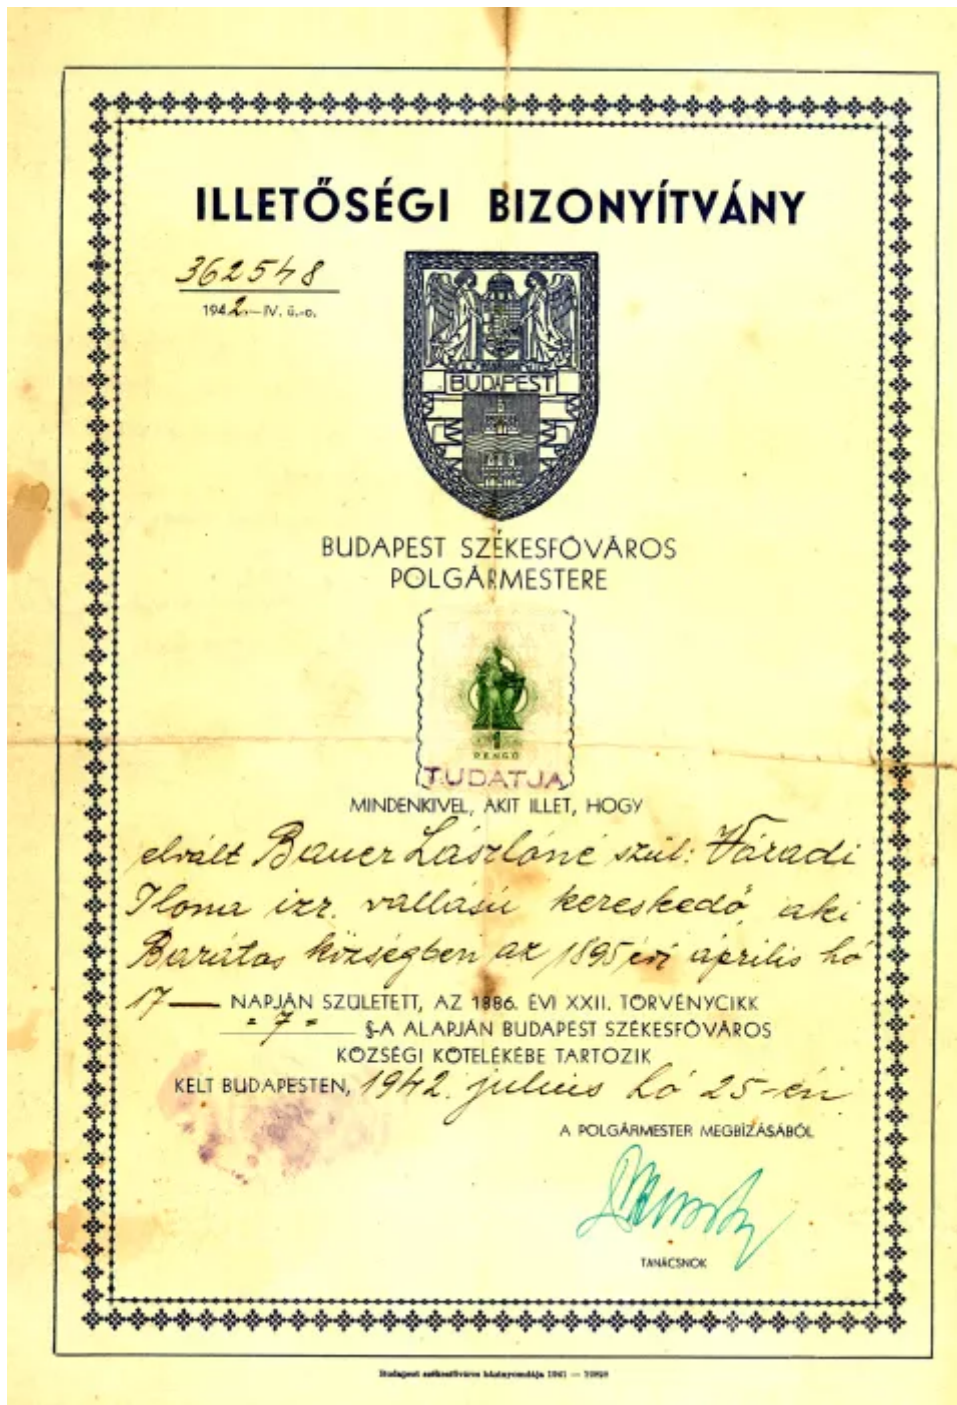 ILLETŐSÉGI BIZONYÍTVÁNY
362548
1942.—IV. ü.-o.
BUDAPEST
BUDAPEST SZÉKESFŐVÁROS
POLGÁRMESTERE
1
PENGŐ
TUDATJA
MINDENKIVEL, AKIT ILLET, HOGY
elvált Bauer Lászlóné szül: Váradi
Ilona izr. vallású kereskedő, aki
Barátos községben az 1895 évi április hó
17 — NAPJÁN SZÜLETETT, AZ 1886. ÉVI XXII. TÖRVÉNYCIKK
= 7 = §-A ALAPJÁN BUDAPEST SZÉKESFŐVÁROS
KÖZSÉGI KÖTELÉKÉBE TARTOZIK
KELT BUDAPESTEN, 1942. július hó 25-én.
A POLGÁRMESTER MEGBÍZÁSÁBÓL
TANÁCSNOK
Budapest székesfőváros házinyomdája 1941 —